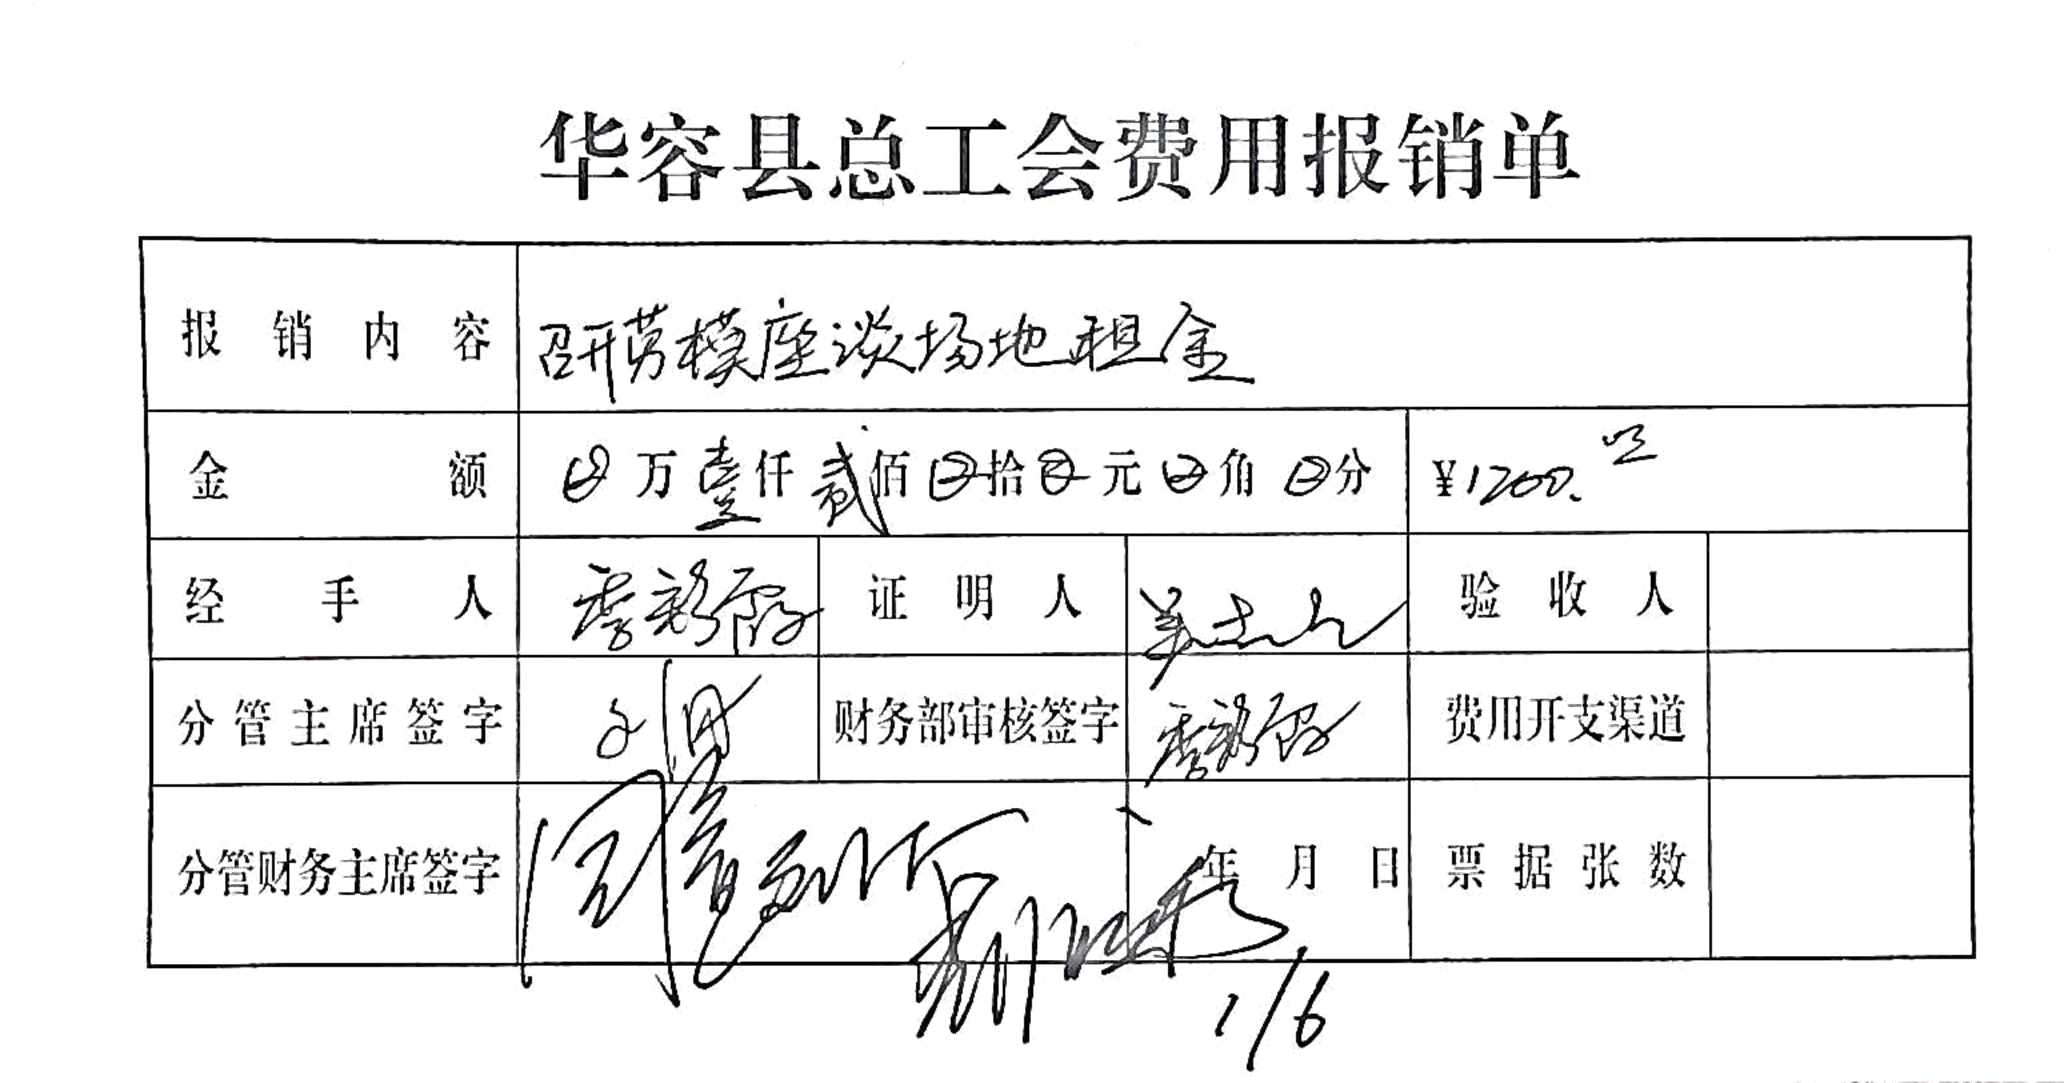 华容县总工会费用报销单
报销内容 召开劳模座谈场地租金
金额 万壹仟贰佰拾元角分 ¥1200.
经手人 证明人 验收人
分管主席签字 财务部审核签字 费用开支渠道
分管财务主席签字 年月日 票据张数
1/6